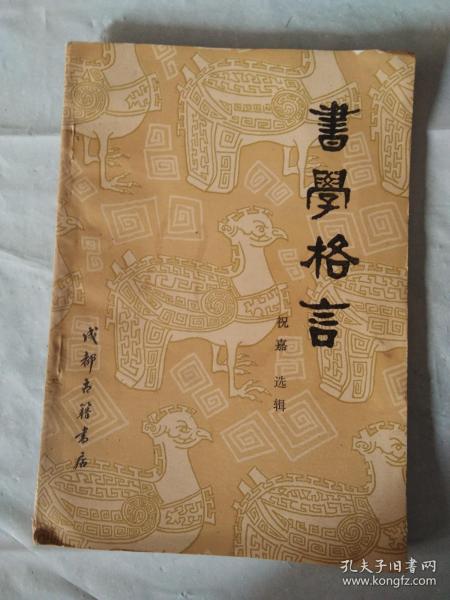 書學格言
祝嘉 选辑
成都古籍书店
孔夫子旧书网
www.kongfz.com